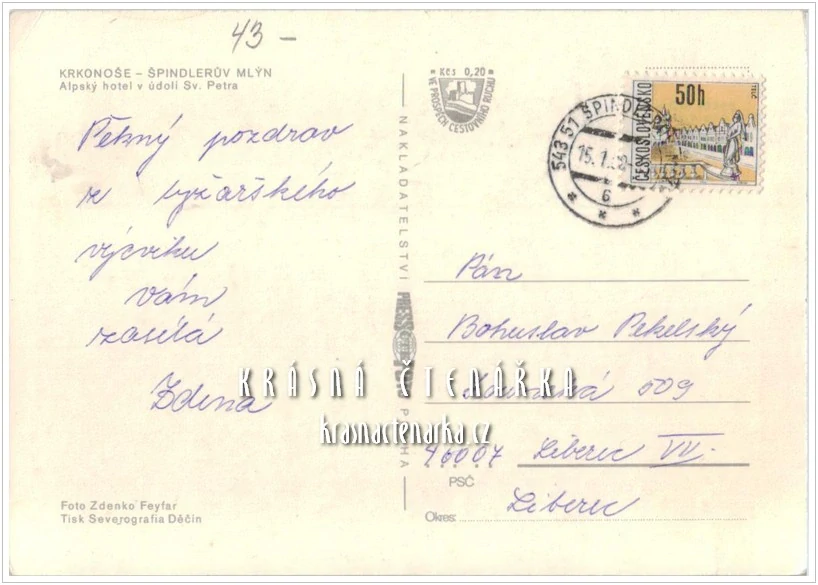 43 –
KRKONOŠE – ŠPINDLERŮV MLÝN
Alpský hotel v údolí Sv. Petra
Kčs 0,20
VE PROSPĚCH CESTOVNÍHO RUCHU
50h
ČESKOSLOVENSKO
TELČ
543 51 ŠPINDL
15.1.
6
Pěkný pozdrav
z lyžařského
výcviku
vám
zasílá
Zdena
NAKLADATELSTVÍ
PRAHA
Pán
Bohuslav Pekelský
509
46007 Liberec VII.
PSČ
Liberec
Okres:
KRÁSNÁ ČTENÁŘKA
krasnactenarka.cz
Foto Zdenko Feyfar
Tisk Severografia Děčín